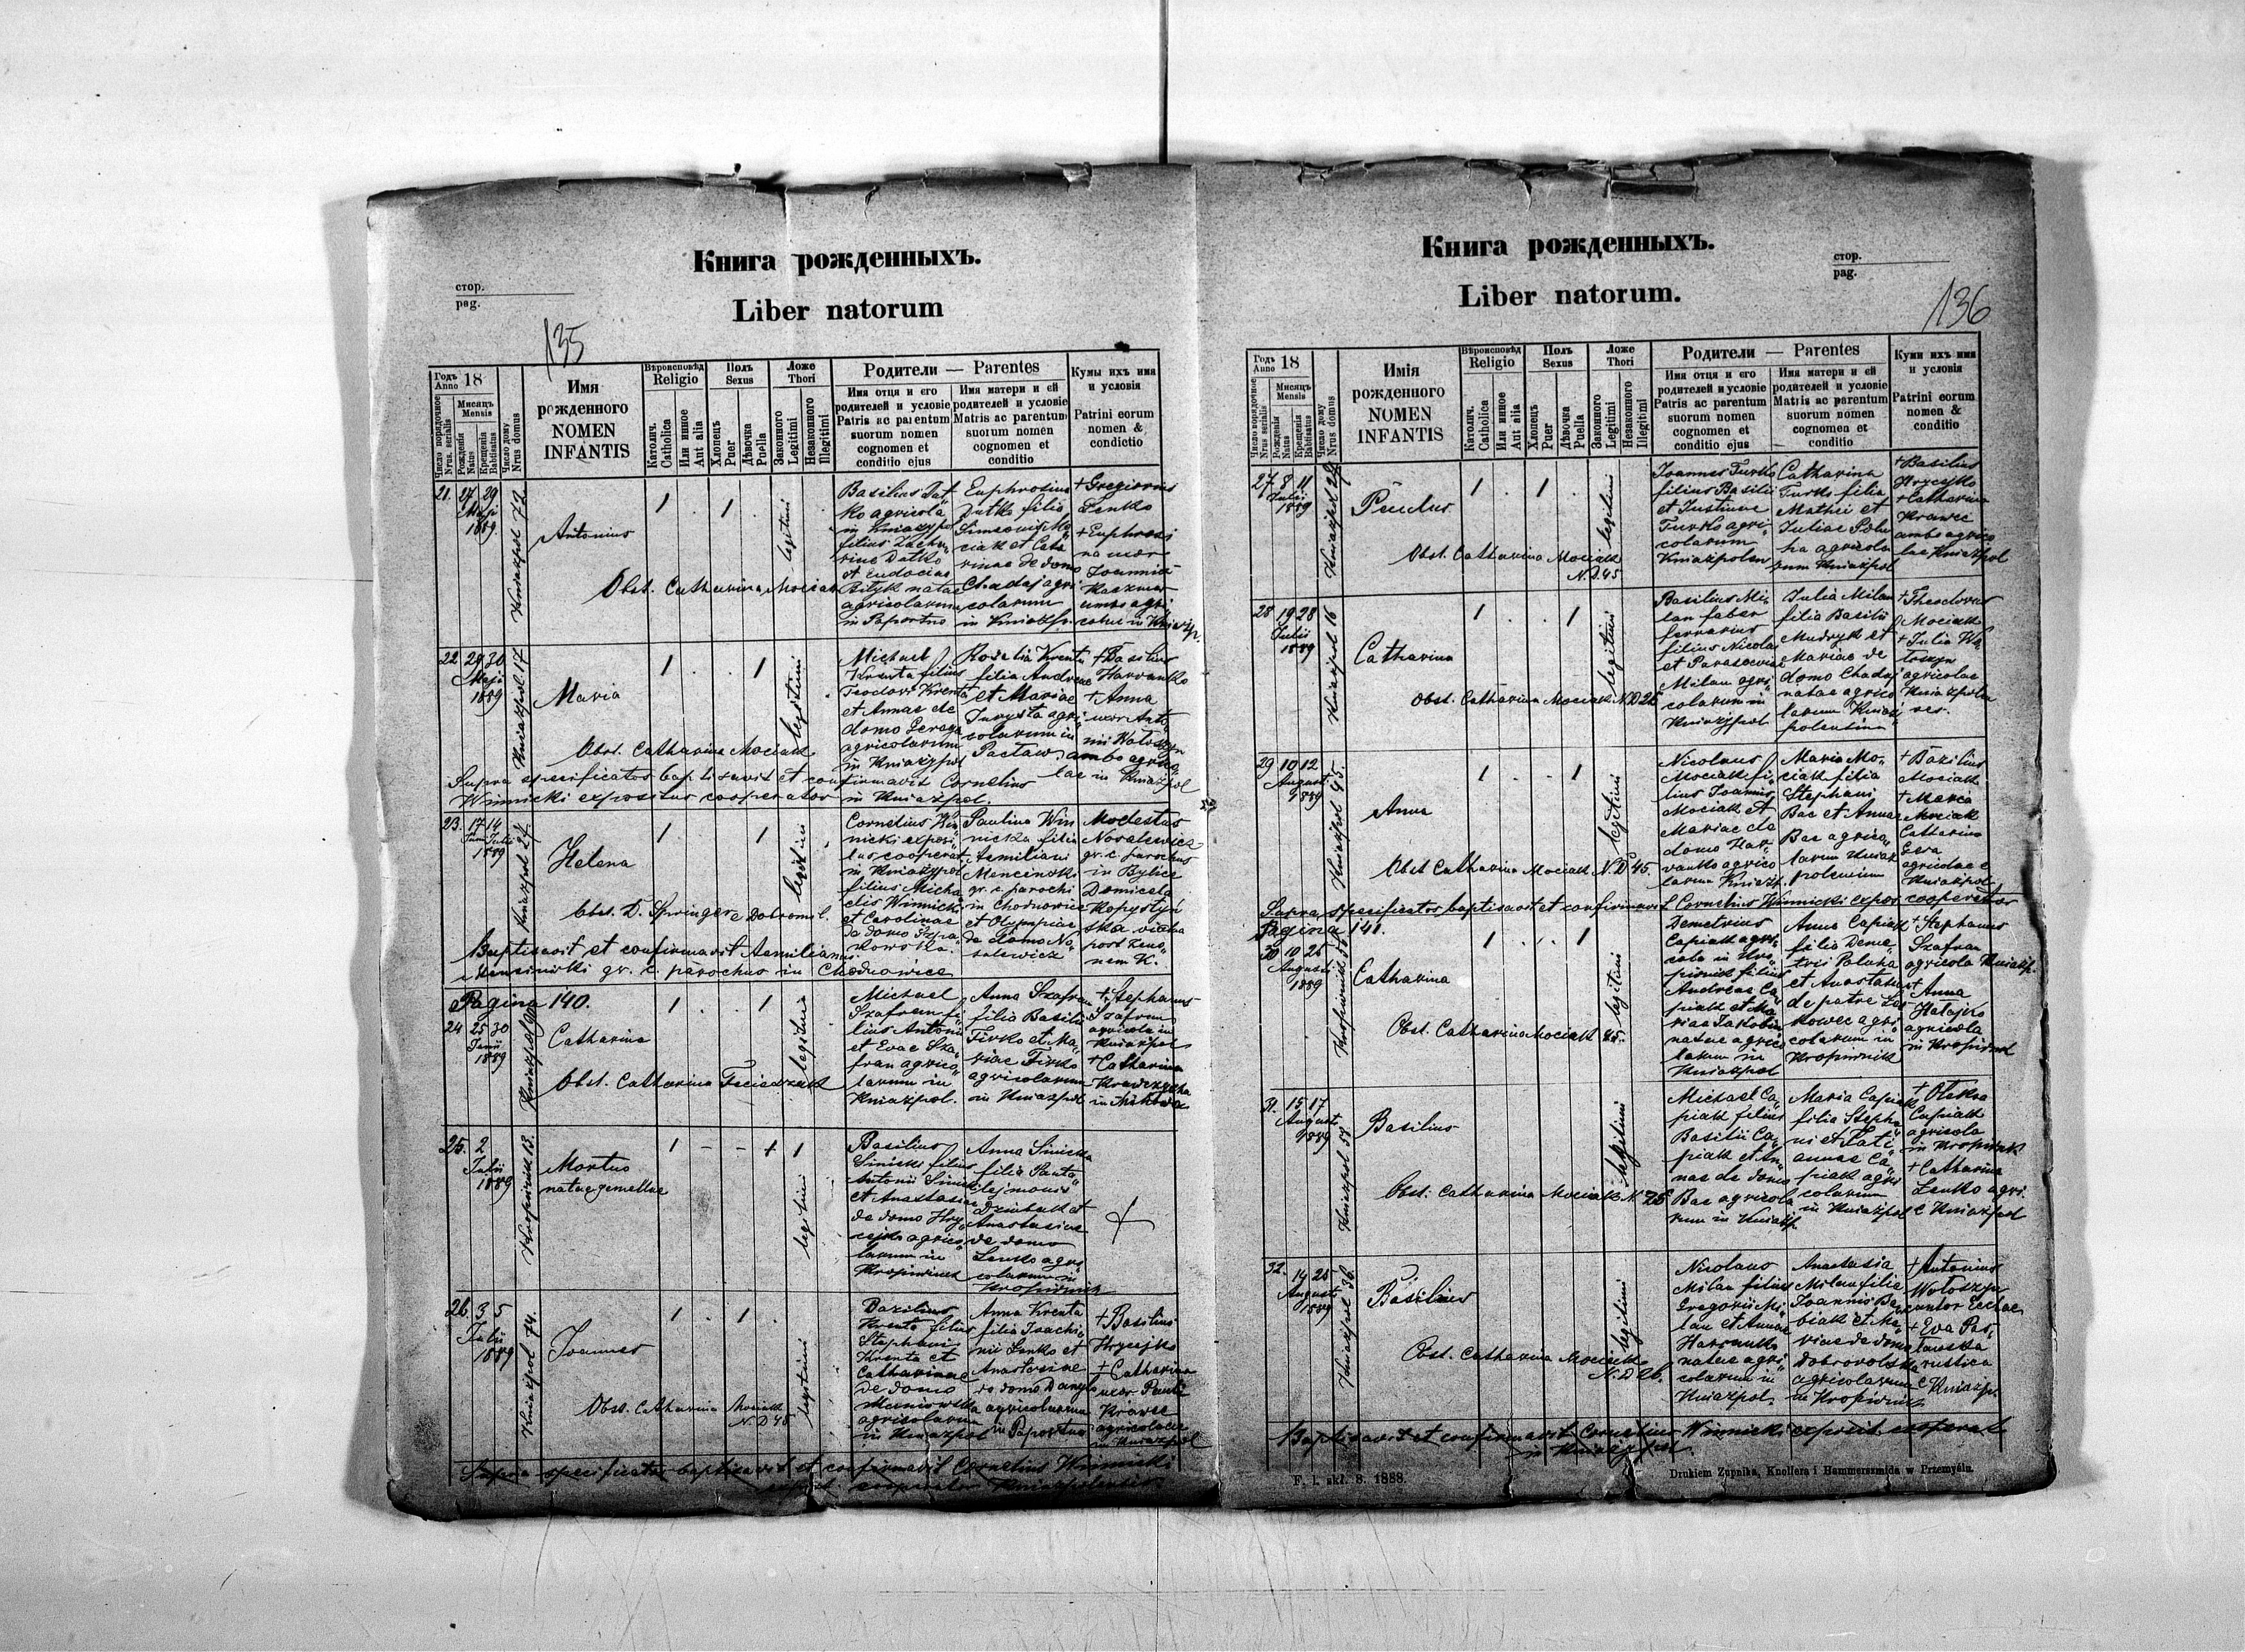 Книга рожденныхъ.
стор.
pag.
Liber natorum
135
Годъ Anno 18
Мисяцъ Mensis
Число порядочное Nrus serialis
Рожденія Natus
Крещенія Babtisatus
Число дому Nrus domus
Имя
рожденного
NOMEN
INFANTIS
Вѣроисповѣд
Religio
Католич. Catholica
Или инное Aut alia
Полъ
Sexus
Хлопецъ Puer
Дѣвочка Puella
Ложе
Thori
Законного Legitimi
Незаконного Illegitimi
Родители — Parentes
Имя отца и его
родителей и условіе
Patris ac parentum
suorum nomen
cognomen et
conditio ejus
Имя матери и ей
родителей и условіе
Matris ac parentum
suorum nomen
cognomen et
conditio
Кумы ихъ имя
и условія
Patrini eorum
nomen &
condictio
21. 27 29
Maji
1889
Kniazpol 72
Antonius
legitimi
Obst. Catharina Mociak
Basilius Dat
ko agricola
filius Zacha
riae Datko
et Eudociae
Bilyk natae
agricolarum
in Paportno
Euphrosina
Datko filia
Simeonis Mo
ciak et Catha
rinae de domo
Chadaj agri
colarum
in Kniazp.
+ Gregorius
Lenko
+ Euphrosi
na uxor
Joannis
ambo agri
colae in Kniazp.
22 29 30
Maji
1889
Kniazpol 17
Maria
legitimi
Obst. Catharina Mociak
Michael
Krenta filius
Teodori Krenta
et Annae de
domo Geraga
agricolarum
in Kniazpol
Rosalia Krenta
filia Andreae
et Mariae
agri
colarum in
Paclaw
+ Basilius
Harvanko
+ Anna
uxor Anto
nii Wołoszyn
ambo agrico
lae in Kniazpol
Supra specificatos baptisavit et confirmavit Cornelius
Winnicki expositus cooperator in Kniazpol.
23. 17 14
Junii Julii
1889
Kniazpol 27
Helena
legitimi
Obst. D. Springer e Dobromil.
Cornelius Win
nicki exposi
tus cooperat.
in Kniazpol
filius Micha
elis Winnicki
et Carolinae
de domo Szpa
kowska.
Paulina Win
nicka filia
Aemiliani
Mencinski
gr. c. parochi
in Chodnowice
et Olympiae
de domo No
salewicz
Modestus
Nosalewicz
gr. c. parochus
in Bylice
Domicela
Kopystyń
ska vidua
post Zeno
nem K.
Baptisavit et confirmavit Aemilianus
Mencinski gr. c. parochus in Chodnowice
Pagina 140.
24 25 30
Junii
1889
Kniazpol 90
Catharina
legitimi
Obst. Catharina Feciaszczak
Michael
Szafran fi
lius Antonii
et Evae Sza
fran agrico
larum in
Kniazpol.
Anna Szafran
filia Basilii
Firko et Ma
riae Firko
agricolarum
in Kniazpol
+ Stephanus
Szafran
agricola in
Kniazpol
+ Catharina
25. 2
Julii
1889
Kropiwnik 13.
Mortuo
natae gemellae
legitimi
Basilius
Sinicki filius
Antonii Sinicki
et Anastasiae
de domo Hry
cejko agrico
larum in
Kropiwnik
Anna Sinicka
filia Panta
lejmonis
Dziubak et
Anastasiae
de domo
Lenko agri
colarum in
Kropiwnik
26. 3 5
Julii
1889
Kniazpol 74.
Joannes
legitimi
Obst. Catharina Mociak
N. D 45
Basilius
Krenta filius
Stephani
Krenta et
Catharinae
de domo
agricolarum
in Kniazpol
Anna Krenta
filia Joachi
mi Lenko et
Anastasiae
agricolarum
in Paportno
+ Basilius
Hrycejko
+ Catharina
uxor Pauli
Krawec
agricolae
in Kniazpol
Supra specificatos baptisavit et confirmavit Cornelius Winnicki
exposit. cooperator Kniazpolensis.
Книга рожденныхъ.
стор.
pag.
Liber natorum.
136
Годъ Anno 18
Мисяцъ Mensis
Число порядочное Nrus serialis
Рожденія Natus
Крещенія Babtisatus
Число дому Nrus domus
Имія
рожденного
NOMEN
INFANTIS
Вѣроисповѣд
Religio
Католич. Catholica
Или инное Aut alia
Полъ
Sexus
Хлопецъ Puer
Дѣвочка Puella
Ложе
Thori
Законного Legitimi
Незаконного Illegitimi
Родители — Parentes
Имя отця и его
родителей и условіе
Patris ac parentum
suorum nomen
cognomen et
conditio ejus
Имя матери и ей
родителей и условіе
Matris ac parentum
suorum nomen
cognomen et
conditio
Куми ихъ имя
и условія
Patrini eorum
nomen &
conditio
27 8 11
Julii
1889
Obst. Catharina Mociak
N. D. 45
legitimi
Joannes Turko
filius Basilii
et Justinae
Turko agri
colarum
Kniazpolen
Catharina
Turko filia
Mathei et
Juliae Polu
ha agricola
rum Kniazpol
+ Basilius
Hrycejko
+ Catharina
Krawec
ambo agrico
lae Kniazpol
28 19 28
Julii
1889
Kniazpol 16
Catharina
legitimi
Obst. Catharina Mociak N. D 26
Basilius Mi
lan faber
ferrarius
filius Nicolai
et Parasceviae
Milan agri
colarum in
Kniazpol
Julia Milan
filia Basilii
Mudryk et
Mariae de
domo Chadaj
natae agrico
larum Kniaz
polensium
+ Theodorus
Mociak
+ Julia Wo
łoszyn
agricolae
Kniazpolen
ses.
29 10 12
Augusti
1889
Kniazpol 45.
Anna
legitimi
Obst Catharina Mociak N. D 45.
Nicolaus
Mociak fi
lius Joannis
Mociak et
Mariae de
domo Har
vanko agrico
larum Kniazp.
Maria Mo
ciak filia
Stephani
Bac et Annae
Bac agrico
larum Kniaz
polensium
+ Basilius
Mociak
+ Maria
Mociak
Catharina
Gera
agricolae e
Kniazpol
Supra specificatos baptisavit et confirmavit Cornelius Winnicki expos. cooperator
Pagina 141.
30 10 26
Augusti
1889
Catharina
legitimi
Obst. Catharina Mociak 45.
Demetrius
Capiak agri
cola in Kro
piwnik filius
Andreae Ca
piak et Ma
riae
natae agrico
larum in
Kniazpol
Anna Capiak
filia Deme
trii Poluha
et Anastasiae
de patre Les
kowec agri
colarum in
Kropiwnik
+ Stephanus
Szafran
agricola Kniazp.
+ Anna
agricola
in Kropiwnik
31. 15 17
Augusti
1889
Basilius
legitimi
Obst. Catharina Mociak N. 26
Michael Ca
piak filius
Basilii Ca
piak et An
nae de domo
Bac agricola
rum in Kniazp.
Maria Capiak
filia Stepha
ni et Tati
annae Ca
piak agri
colarum
in Kniazpol
+ Oleksa
Capiak
agricola
in Kropiwnik
+ Catharina
Lenko agri.
e Kniazpol
32. 14 25
Augusti
1889
Kniazpol 36.
Basilius
legitimi
Obst. Catharina Mociak
N. D 26.
Nicolaus
Milan filius
Gregorii Mi
lan et Annae
Harvanko
natae agri
colarum in
Kniazpol.
Anastasia
Milan filia
Joannis Ba
biak et Ma
riae de domo
Dobrovolska
agricolarum
in Kropiwnik
+ Antonius
Wołoszyn
cantor Eccleae
+ Eva Pas
ławska
rustica
e Kniazp.
Baptisavit et confirmavit Cornelius Winnicki exposit. cooperat
in Kniazpol.
F. l. skł. 8. 1888.
Drukiem Zupnika, Knollera i Hammerszmida w Przemyślu.